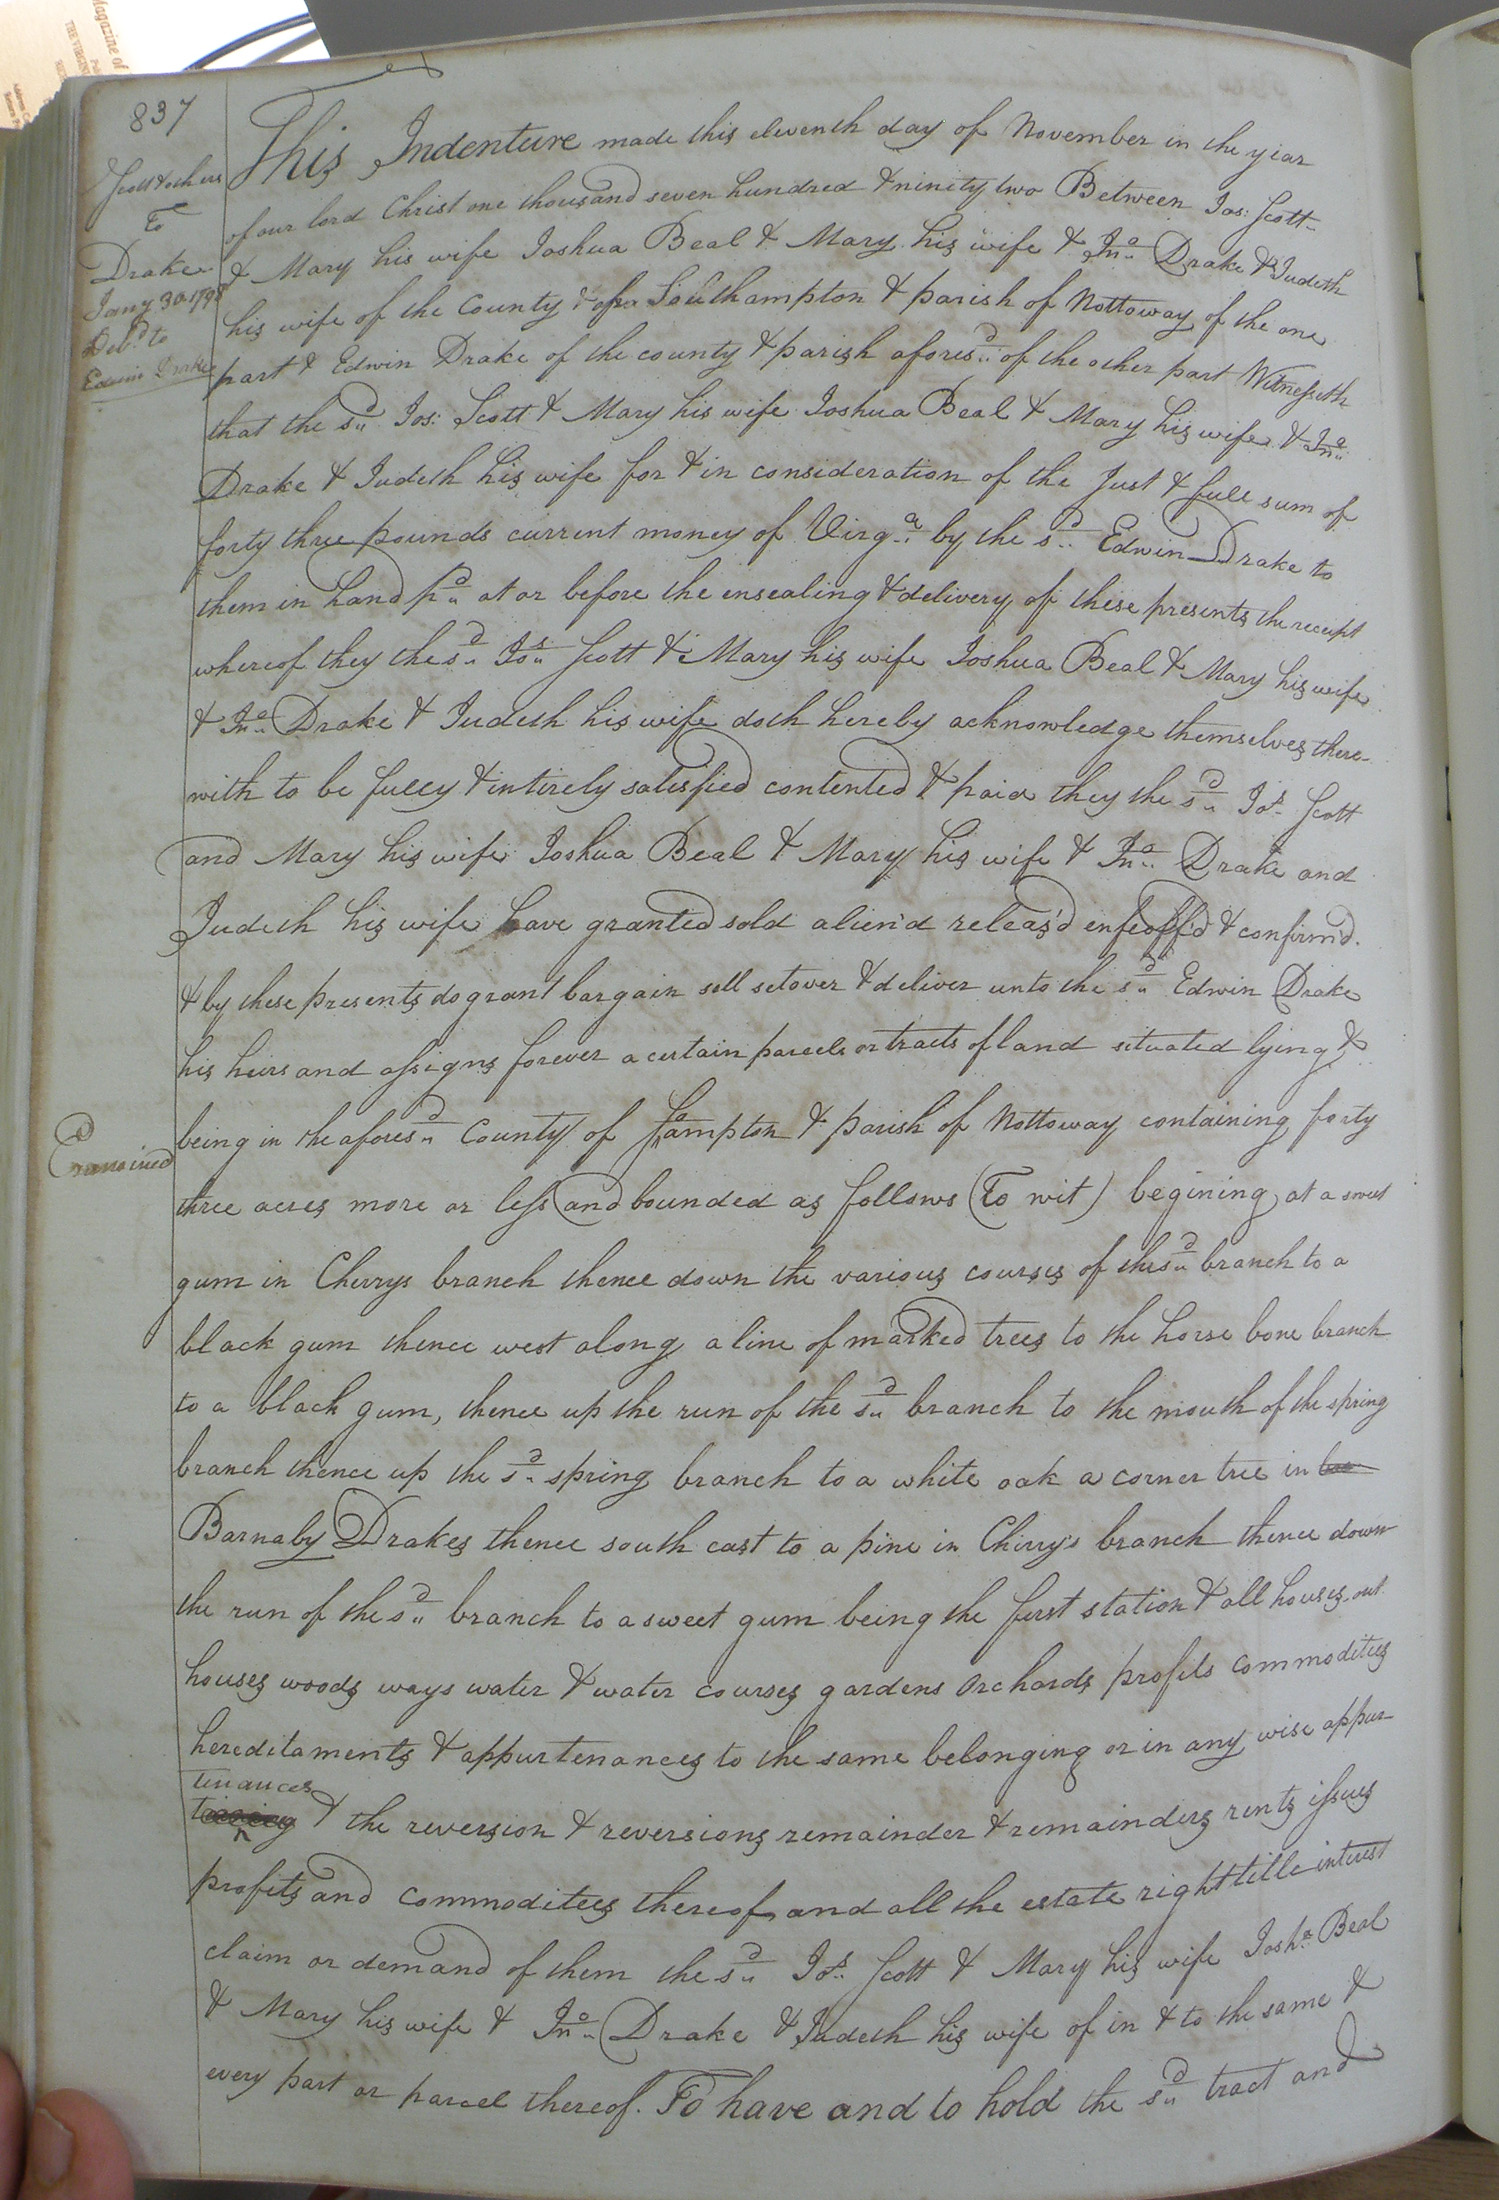 837
Scott & others
To
Drake
Jany 30 1798
Deld. to
Edwin Drake
This Indenture made this eleventh day of November in the year
of our lord Christ one thousand seven hundred & ninity two Between Jos: Scott
& Mary his wife Joshua Beal & Mary his wife & Jno. Drake & Judeth
his wife of the County of Southampton & parish of Nottoway of the one
part & Edwin Drake of the county & parish aforesd. of the other part Witnesseth
that the sd. Jos: Scott & Mary his wife Joshua Beal & Mary his wife & Jno.
Drake & Judeth his wife for & in consideration of the Just & full sum of
forty three pounds current money of Virga. by the sd. Edwin Drake to
them in hand pd. at or before the ensealing & delivery of these presents the receipt
whereof they the sd. Jos. Scott & Mary his wife Joshua Beal & Mary his wife
& Jno. Drake & Judeth his wife doth hereby acknowledge themselves there-
with to be fully & intirely satisfied contented & paid they the sd. Jos. Scott
and Mary his wife Joshua Beal & Mary his wife & Jno. Drake and
Judeth his wife have granted sold alien'd releas'd enfeoff'd & confirm'd
& by these presents do grant bargain sell setover & deliver unto the sd. Edwin Drake
his heirs and assigns forever a certain parcels or tracts of land situated lying &
being in the aforesd. County of Sampton & parish of Nottoway containing forty
Examined
three acres more or less and bounded as follows (To wit) begining at a sweet
gum in Cherrys branch thence down the various courses of the sd. branch to a
black gum thence west along a line of marked trees to the horse bone branch
to a black gum, thence up the run of the sd. branch to the mouth of the spring
branch thence up the sd. spring branch to a white oak a corner tree in
Barnaby Drakes thence south east to a pine in Chirry's branch thence down
the run of the sd. branch to a sweet gum being the first station & all houses out
houses woods ways water & water courses gardens Orchards profits commodities
hereditaments & appurtenances to the same belonging or in any wise appur-
tenances
& the reversion & reversions remainder & remainders rents issues
profits and commodities thereof and all the estate right title interest
claim or demand of them the sd. Jos. Scott & Mary his wife Josha. Beal
& Mary his wife & Jno. Drake & Judeth his wife of in & to the same &
every part or parcel thereof. To have and to hold the sd. tract and